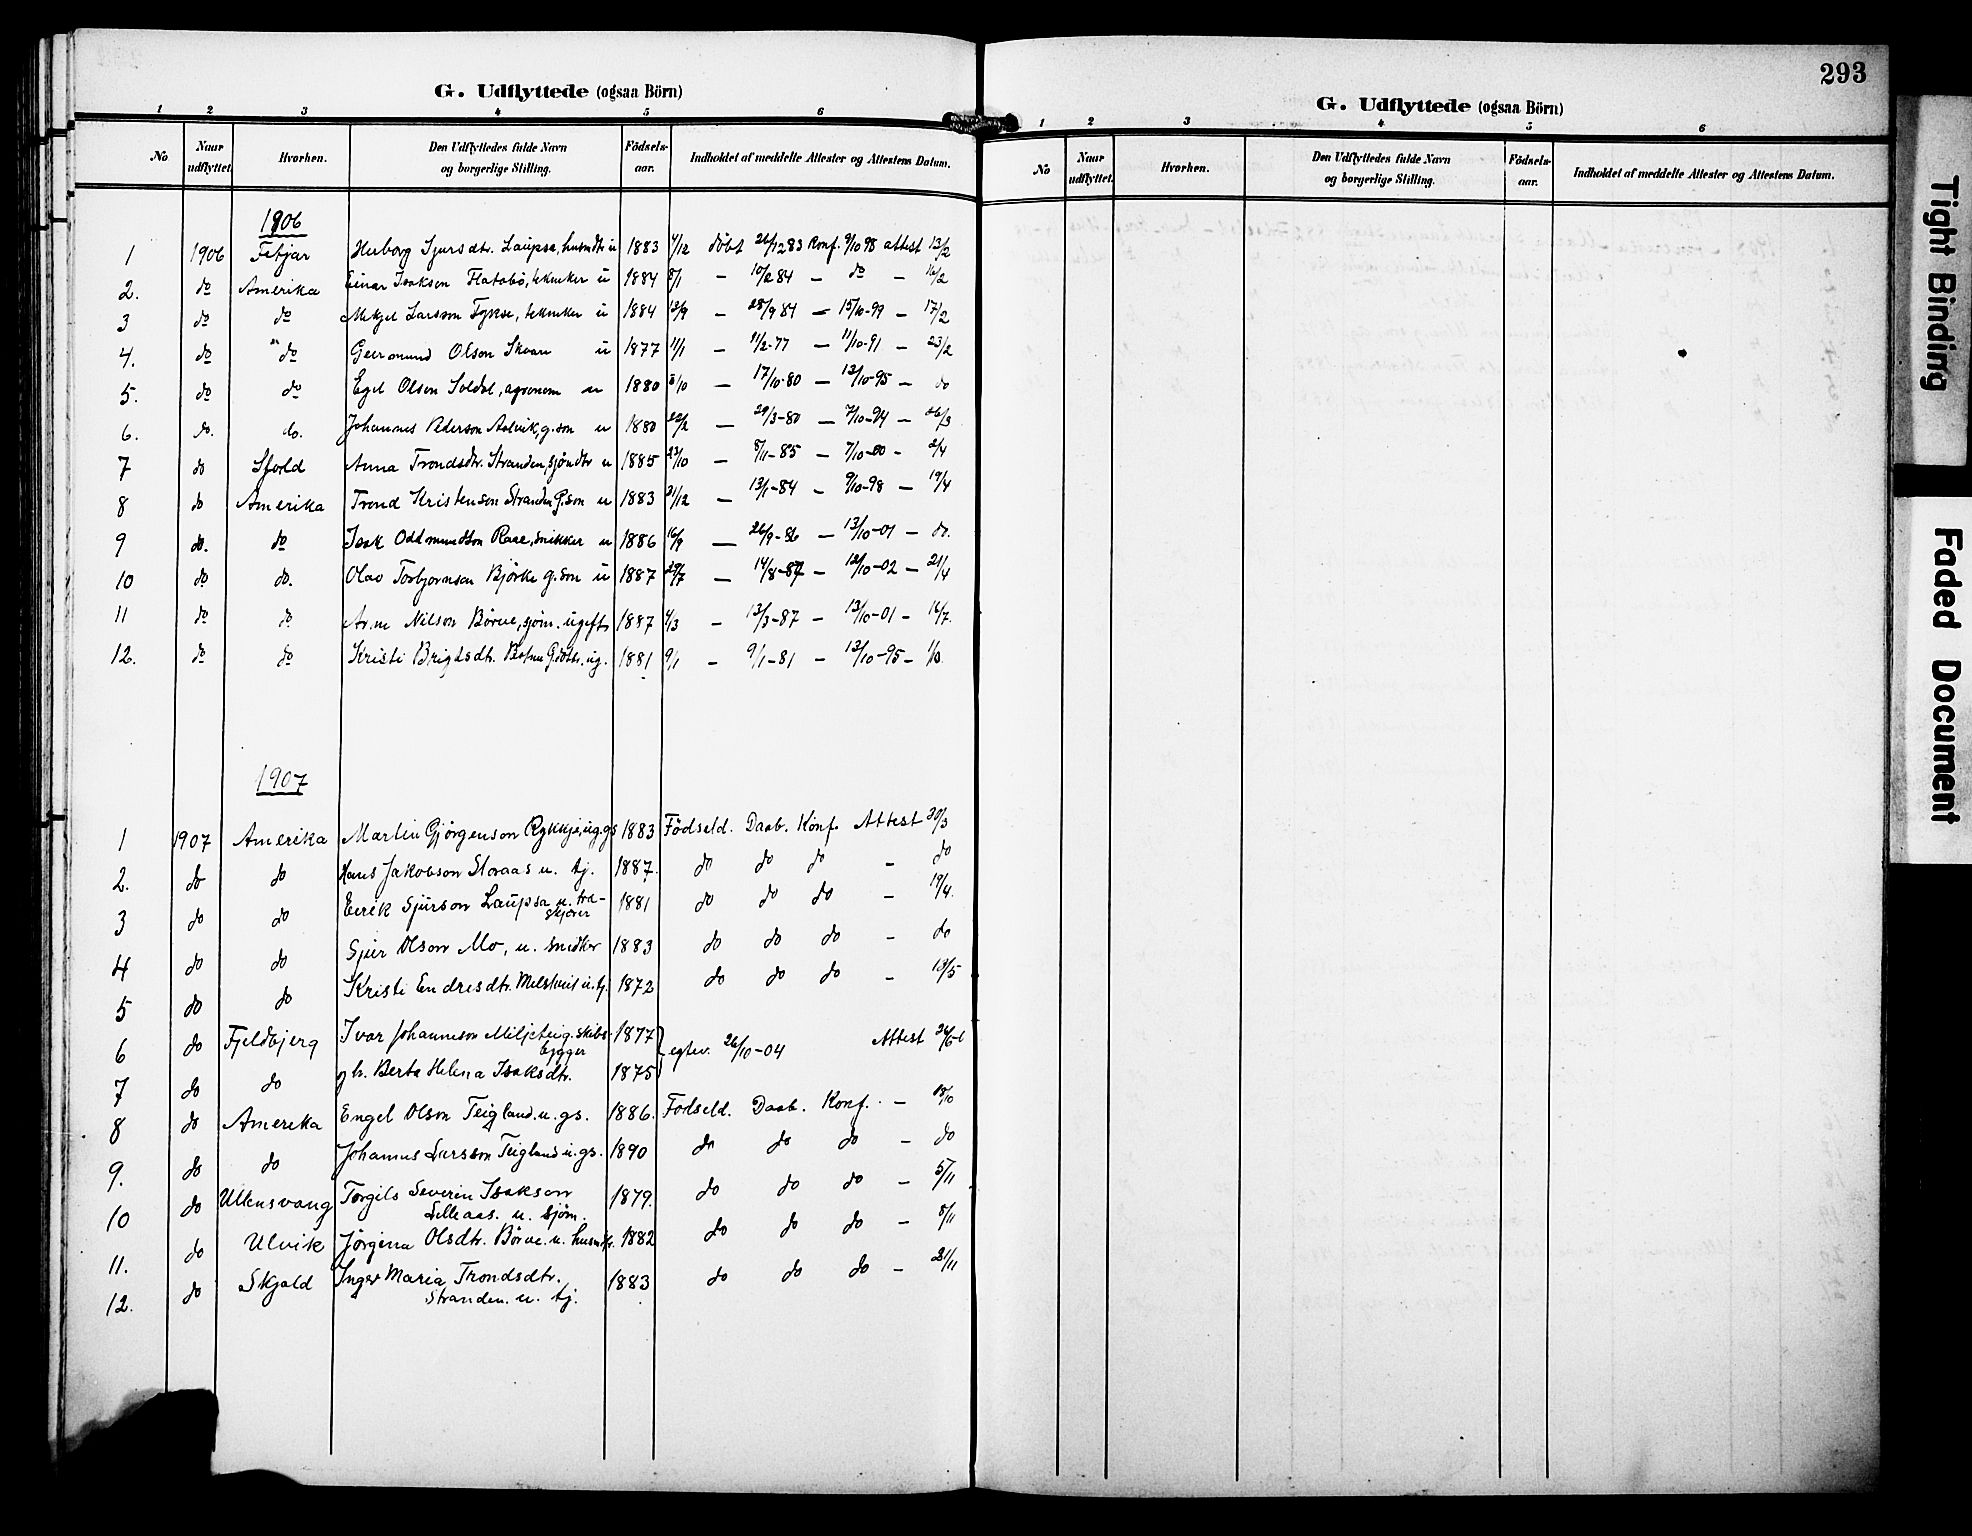 G. Udflyttede (ogsaa Börn)
1 2 3 4 5 6
No. Naar udflyttet. Hvorhen. Den Udflyttedes fulde Navn og borgerlige Stilling. Födsels-aar. Indholdet af meddelte Attester og Attestens Datum.
1906
1 1906 Fitjar Herborg Sjursdtr. Laupsa, husmdtr u 1883 4/12 döbt 26/12 83 Konf. 9/10 98 attest 13/2
2. do Amerika Einar Isaksen Flatabö, tekniker u 1884 8/1 – 10/2 84 – do – 16/2
3 do do Mikjel Larsson Fykse, tekniker u 1884 13/9 – 28/9 84 – 15/10-99 – 17/2
4. do do Geirmund Olson Skaar u 1877 11/1 – 11/2-77 – 11/10-91 – 23/2
5. do do Egil Olson Soldal, agronom u 1880 3/10 – 17/10-80 – 13/10-95 – do
6. do. do. Johannes Pederson Aalvik, g.son u 1880 22/2 – 29/3-80 – 7/10-94 – 26/3
7 do Sfold Anna Trondsdtr. Stranden, sjömdtr u 1885 23/10 – 8/11-85 – 7/10-00 – 2/4
8 do Amerika Trond Kristenson Stranden G.son u 1883 21/12 – 13/1-84 – 9/10-98 – 19/4
9 do. do Isak Oddmundson Raae, snikker u 1886 16/9 – 26/9-86 – 13/10-01 – do.
10 do do. Olav Torbjornson Bjørke g.son u 1887 29/7 – 14/8-87 – 12/10-02 – 21/4
11 do do Arne Nilson Börve, sjöm. ugift 1887 4/3 – 13/3-87 – 13/10-01 – 16/7.
12. do do Kristi Brigtsdtr. G.dtr. ug. 1881 9/1 – 9/1-81 – 13/10-95 – 1/10.
1907
1 1907 Amerika Martin Gjörgenson Rykkje, ug. gs 1883 Födseld. Daab. Konf. Attest 30/3
2. do do Hans Jakobson Storaas u. tj. 1887. do do do – do
3 do do Eirik Sjurson Laupsa u. træ-
skjærer 1881 do do do – 19/4.
4 do do Sjur Olson Mo, u. snedker 1883 do do do – do
5 do do Kristi Endresdtr. Melstveit u. tj. 1872 do do do – 13/5
6 do Fjeldbjerg Ivar Johanneson Miljeteig. skibs-
bygger 1877 egtev. 26/10-04 Attest
7 do do g h. Berta Helena Isaksdtr. 1875
8 do Amerika Engel Olson Teigland. u. gs. 1886. Fodseld. Daab. Konf. – 18/10
9. do do Johannes Larsson Teigland u. gs. 1890 do do do – do
10 do Ullensvang Torgils Severin Isakson
Lilleaas. u. sjöm. 1879. do do do – 5/11
11. do Ulvik Jörgina Olsdtr. Börve. u. husmdtr. 1882 do do do – 8/11
12. do Skjold Inger Maria Trondsdtr.
Stranden. u. tj. 1883 do do do – 21/11
293
G. Udflyttede (ogsaa Börn)
1 2 3 4 5 6
No Naar udflyttet. Hvorhen. Den Udflyttedes fulde Navn og borgerlige Stilling. Födsels-aar. Indholdet af meddelte Attester og Attestens Datum.
Tight Binding
Faded Document